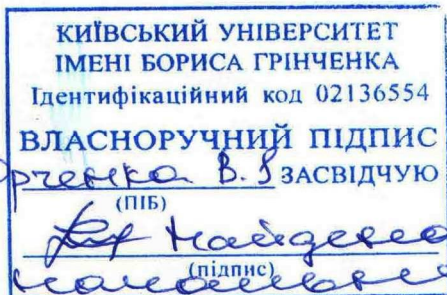 КИЇВСЬКИЙ УНІВЕРСИТЕТ
ІМЕНІ БОРИСА ГРІНЧЕНКА
Ідентифікаційний код 02136554
ВЛАСНОРУЧНИЙ ПІДПИС
рченка В. ЗАСВІДЧУЮ
(ПІБ)
(підпис)